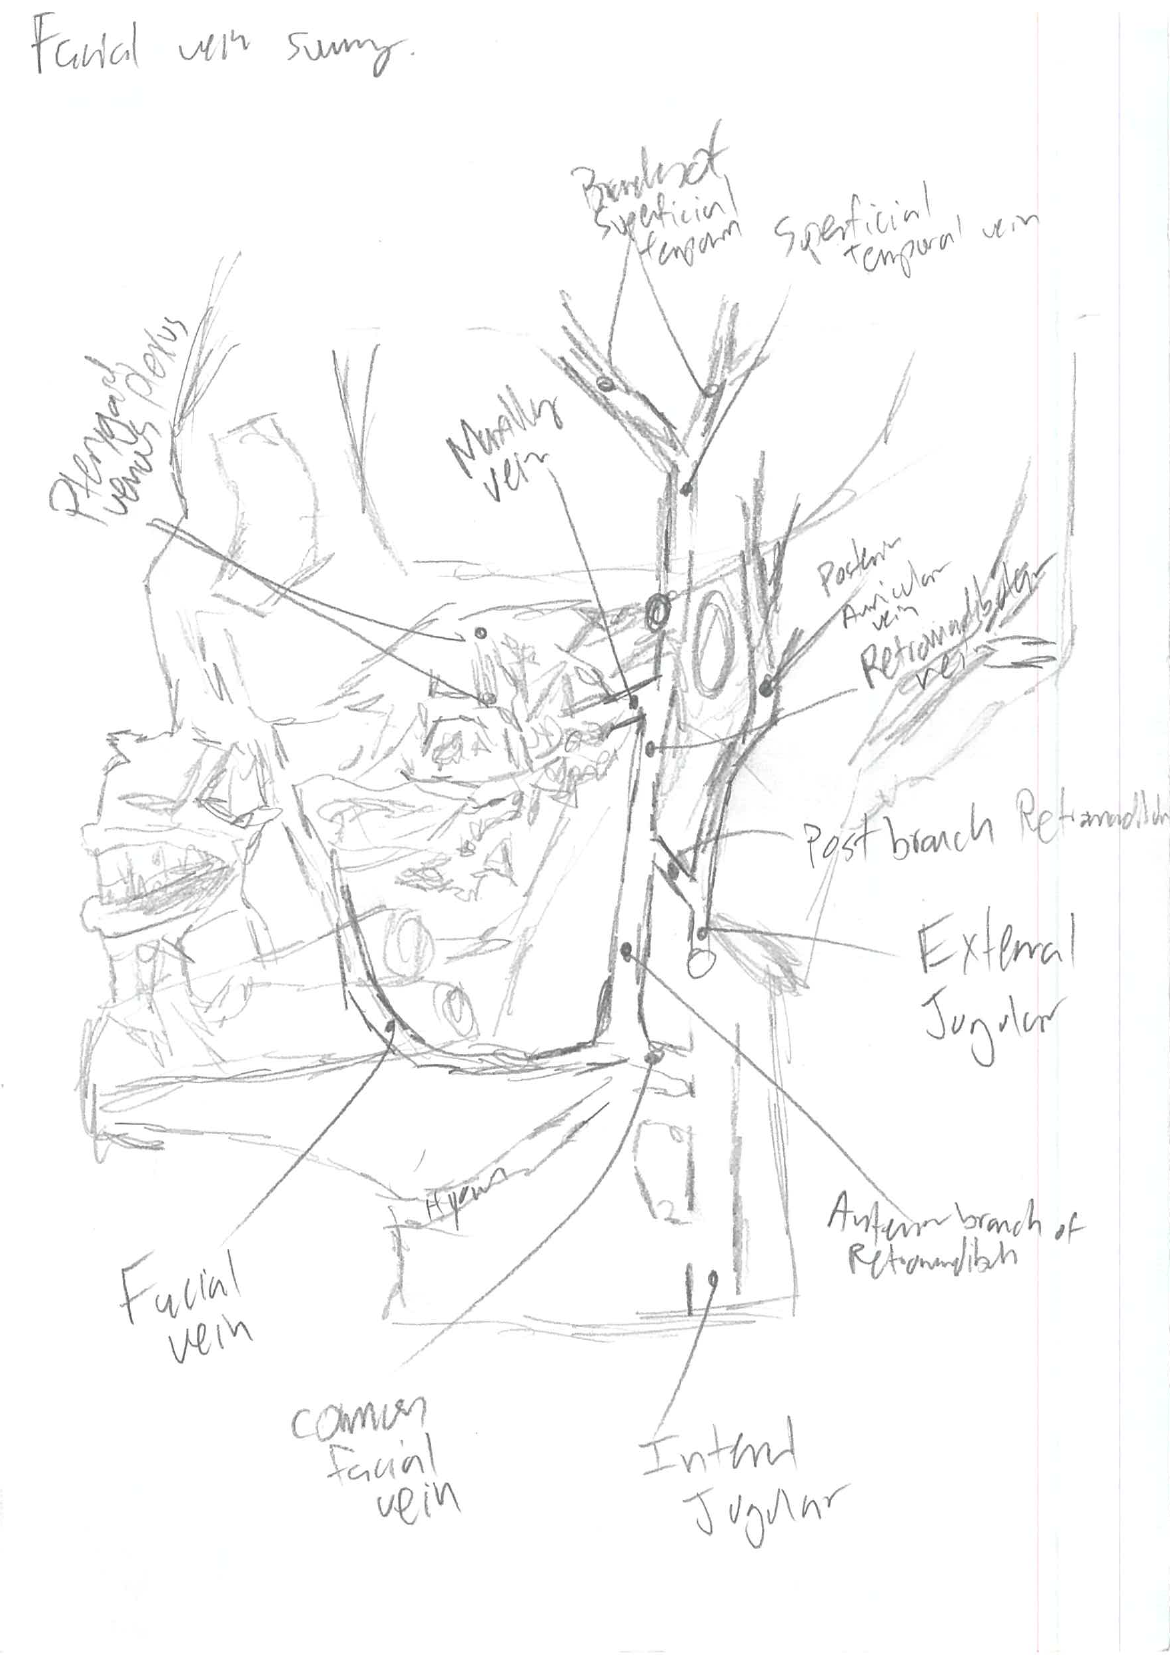 Facial vein
Superficial
Superficial
temporal vein
Pterygoid
venous plexus
Maxillary
vein
Posterior
Auricular
vein
Retromandibular
vein
Post branch Retromandibular
External
Jugular
Anterior branch of
Hyoid
Facial
vein
common
facial
vein
Internal
Jugular